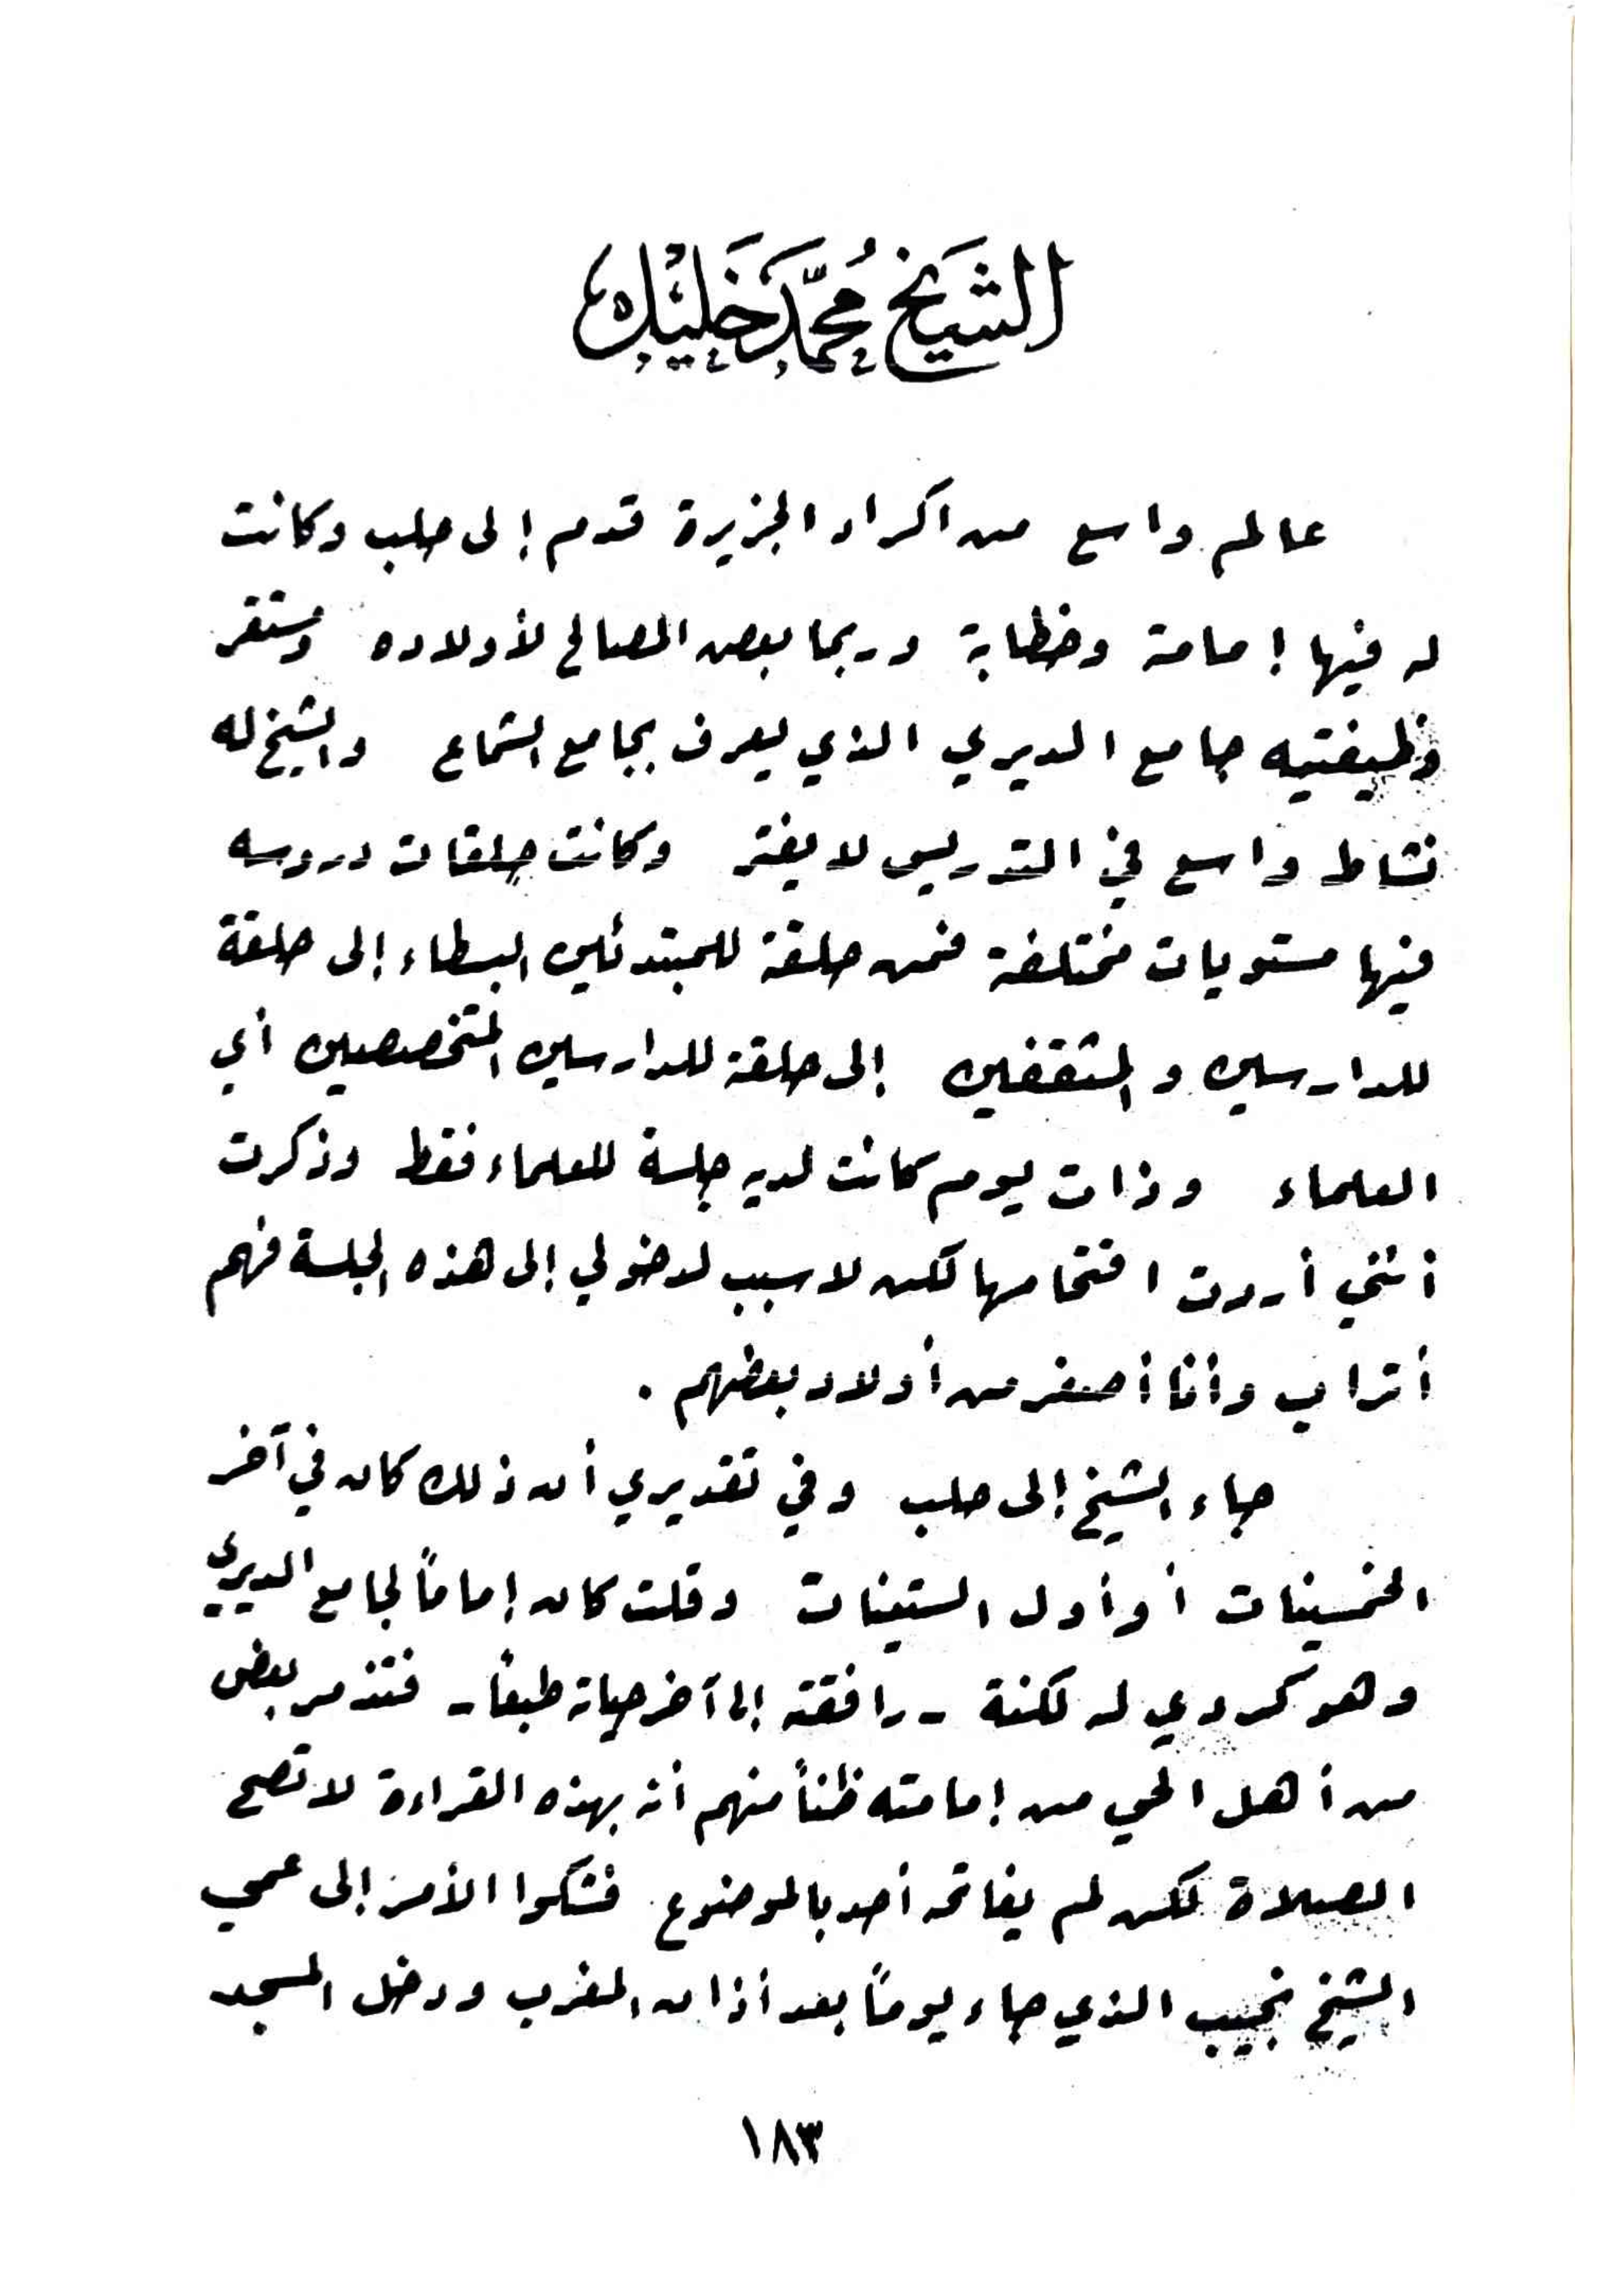 الشَيَخ مُحمَّد خَليْل
عالم واسع من اكراد الجزيرة قدم إلى حلب وكانت
له فيها إمامة وخطابة وربما بعض المصالح لأولاده ومستقر
وظيفتيه جامع الديري الذي يعرف بجامع الشماع والشيخ له
نشاط واسع في التدريس لا يفتر وكانت حلقات دروسه
فيها مستويات مختلفة فمن حلقة للمبتدئين البسطاء إلى حلقة
للدارسين والمثقفين إلى حلقة للدارسين المتخصصين أي
العلماء وذات يوم كانت لديه جلسة للعلماء فقط وذكرت
أنني أردت اقتحامها لكن لا سبب لدخولي إلى هذه الجلسة فهم
أتراب وأنا أصغر من أولاد بعضهم .
جاء الشيخ إلى حلب وفي تقديري أن ذلك كان في آخر
الخمسينات أو أول الستينات وقلت كان إماماً لجامع الديري
وهو كردي له لكنة - رافقته إلى آخر حياته طبعاً - فتذمر بعض
من أهل الحي من إمامته ظناً منهم أنه بهذه القراءة لا تصح
الصلاة لكن لم يفاتحه أحد بالموضوع فشكوا الأمر إلى عمي
الشيخ نجيب الذي جاء يوماً بعد أذان المغرب ودخل المسجد
١٨٣